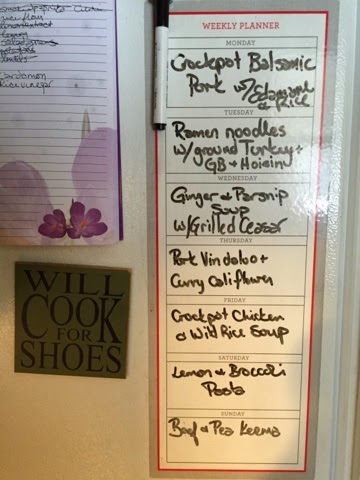 rice flour
Cardamom
Rice vinegar
WEEKLY PLANNER
MONDAY
Crockpot Balsamic
Pork w/ Edamame
& Rice
TUESDAY
Ramen noodles
w/ground Turkey +
GB + Hoisin
WEDNESDAY
Ginger & Parsnip
Soup
w/Grilled Ceasar
THURSDAY
Pork Vindaloo +
Curry Califlower
FRIDAY
Crockpot Chicken
& Wild Rice Soup
SATURDAY
Lemon & Broccoli
Pasta
SUNDAY
Beef & Pea Keema
WILL
COOK
FOR
SHOES